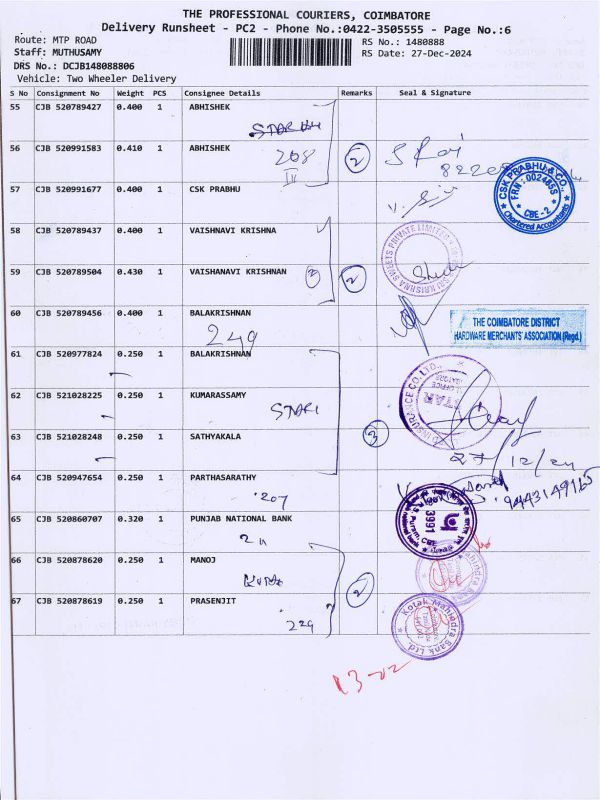 THE PROFESSIONAL COURIERS, COIMBATORE
Delivery Runsheet - PC2 - Phone No.:0422-3505555 - Page No.:6
Route: MTP ROAD
RS No.: 1480888
Staff: MUTHUSAMY
RS Date: 27-Dec-2024
DRS No.: DCJB148088806
Vehicle: Two Wheeler Delivery
S No Consignment No Weight PCS Consignee Details Remarks Seal & Signature
55 CJB 520789427 0.400 1 ABHISHEK
56 CJB 520991583 0.410 1 ABHISHEK
208
2
57 CJB 520991677 0.400 1 CSK PRABHU
CSK PRABHU & CO.,
FRN: 002485S
CBE - 2
Chartered Accountants
58 CJB 520789437 0.400 1 VAISHNAVI KRISHNA
59 CJB 520789504 0.430 1 VAISHANAVI KRISHNAN
3
2
SRI KRISHNA SWEETS PRIVATE LIMITED
60 CJB 520789456 0.400 1 BALAKRISHNAN
249
THE COIMBATORE DISTRICT
HARDWARE MERCHANTS' ASSOCIATION (Regd.)
61 CJB 520977824 0.250 1 BALAKRISHNAN
62 CJB 521028225 0.250 1 KUMARASSAMY
STAR
63 CJB 521028248 0.250 1 SATHYAKALA
3
27/12/24
64 CJB 520947654 0.250 1 PARTHASARATHY
207
9443149165
65 CJB 520860707 0.320 1 PUNJAB NATIONAL BANK
3991
66 CJB 520878620 0.250 1 MANOJ
2
67 CJB 520878619 0.250 1 PRASENJIT
229
Kotak Mahindra Bank Ltd.